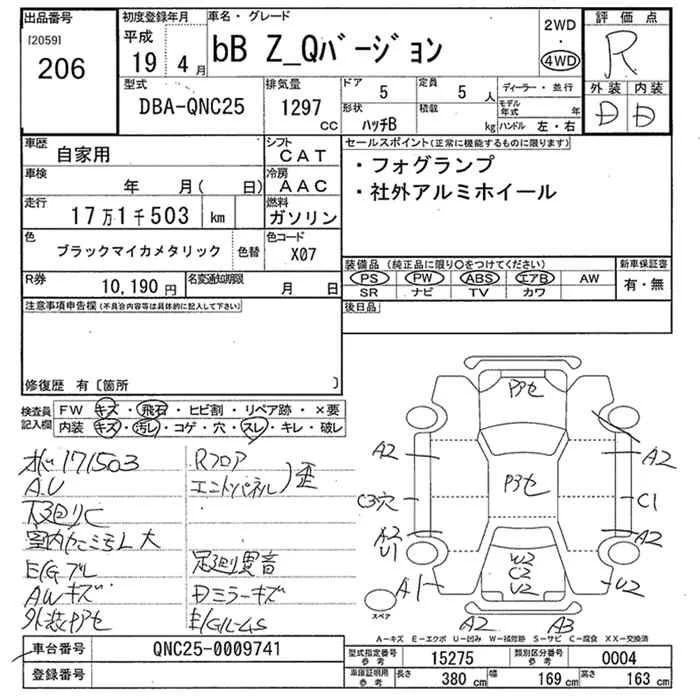 出品番号 初度登録年月 車名・グレード 2WD 評価点
[2059] 平成 bB Z_Qバージョン ・ R
206 19 4月 4WD
外装 内装
D D
型式 排気量 ドア 定員 ディーラー・並行
DBA-QNC25 1297 CC 5 5人 モデル年式 年
形状 積載
ハッチB kg ハンドル 左・右
車歴 シフト セールスポイント(正常に機能するものに限ります)
自家用 CAT ・フォグランプ
車検 冷房 ・社外アルミホイール
年 月( 日) AAC
走行 燃料
17万1千503 km ガソリン
色 色コード
ブラックマイカメタリック 色替 X07
装備品(純正品に限り○をつけてください) 新車保証書
R券 名変通知期限 PS PW ABS エアB AW 有・無
10,190円 月 日 SR ナビ TV カワ
注意事項申告欄(不具合内容等は具体的に記入して下さい) 後日品
修復歴 有〔箇所 〕
検査員 FW キズ・飛石・ヒビ割・リペア跡・×要
記入欄 内装 キズ・汚レ・コゲ・穴・スレ・キレ・破レ
171503 Rフロア
A.U エンドパネル)歪
下回りC
室内 大
E/G 足廻り異音
AWキズ Dミラーキズ
外装
A2 A2
C3穴 C1
A2 A2
U1
W2
C2
U2
A1 U2
スペア
A2 A3
A-キズ E-エクボ U-凹み W-補修跡 S-サビ C-腐食 XX-交換済
車台番号 QNC25-0009741 型式指定番号 参考 15275 類別区分番号 参考 0004
登録番号 車庫証明用 参考 長さ 380 cm 幅 169 cm 高さ 163 cm